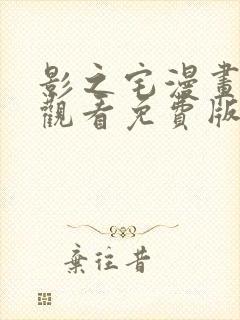 影之宅漫畫
觀看免費版
棄往昔